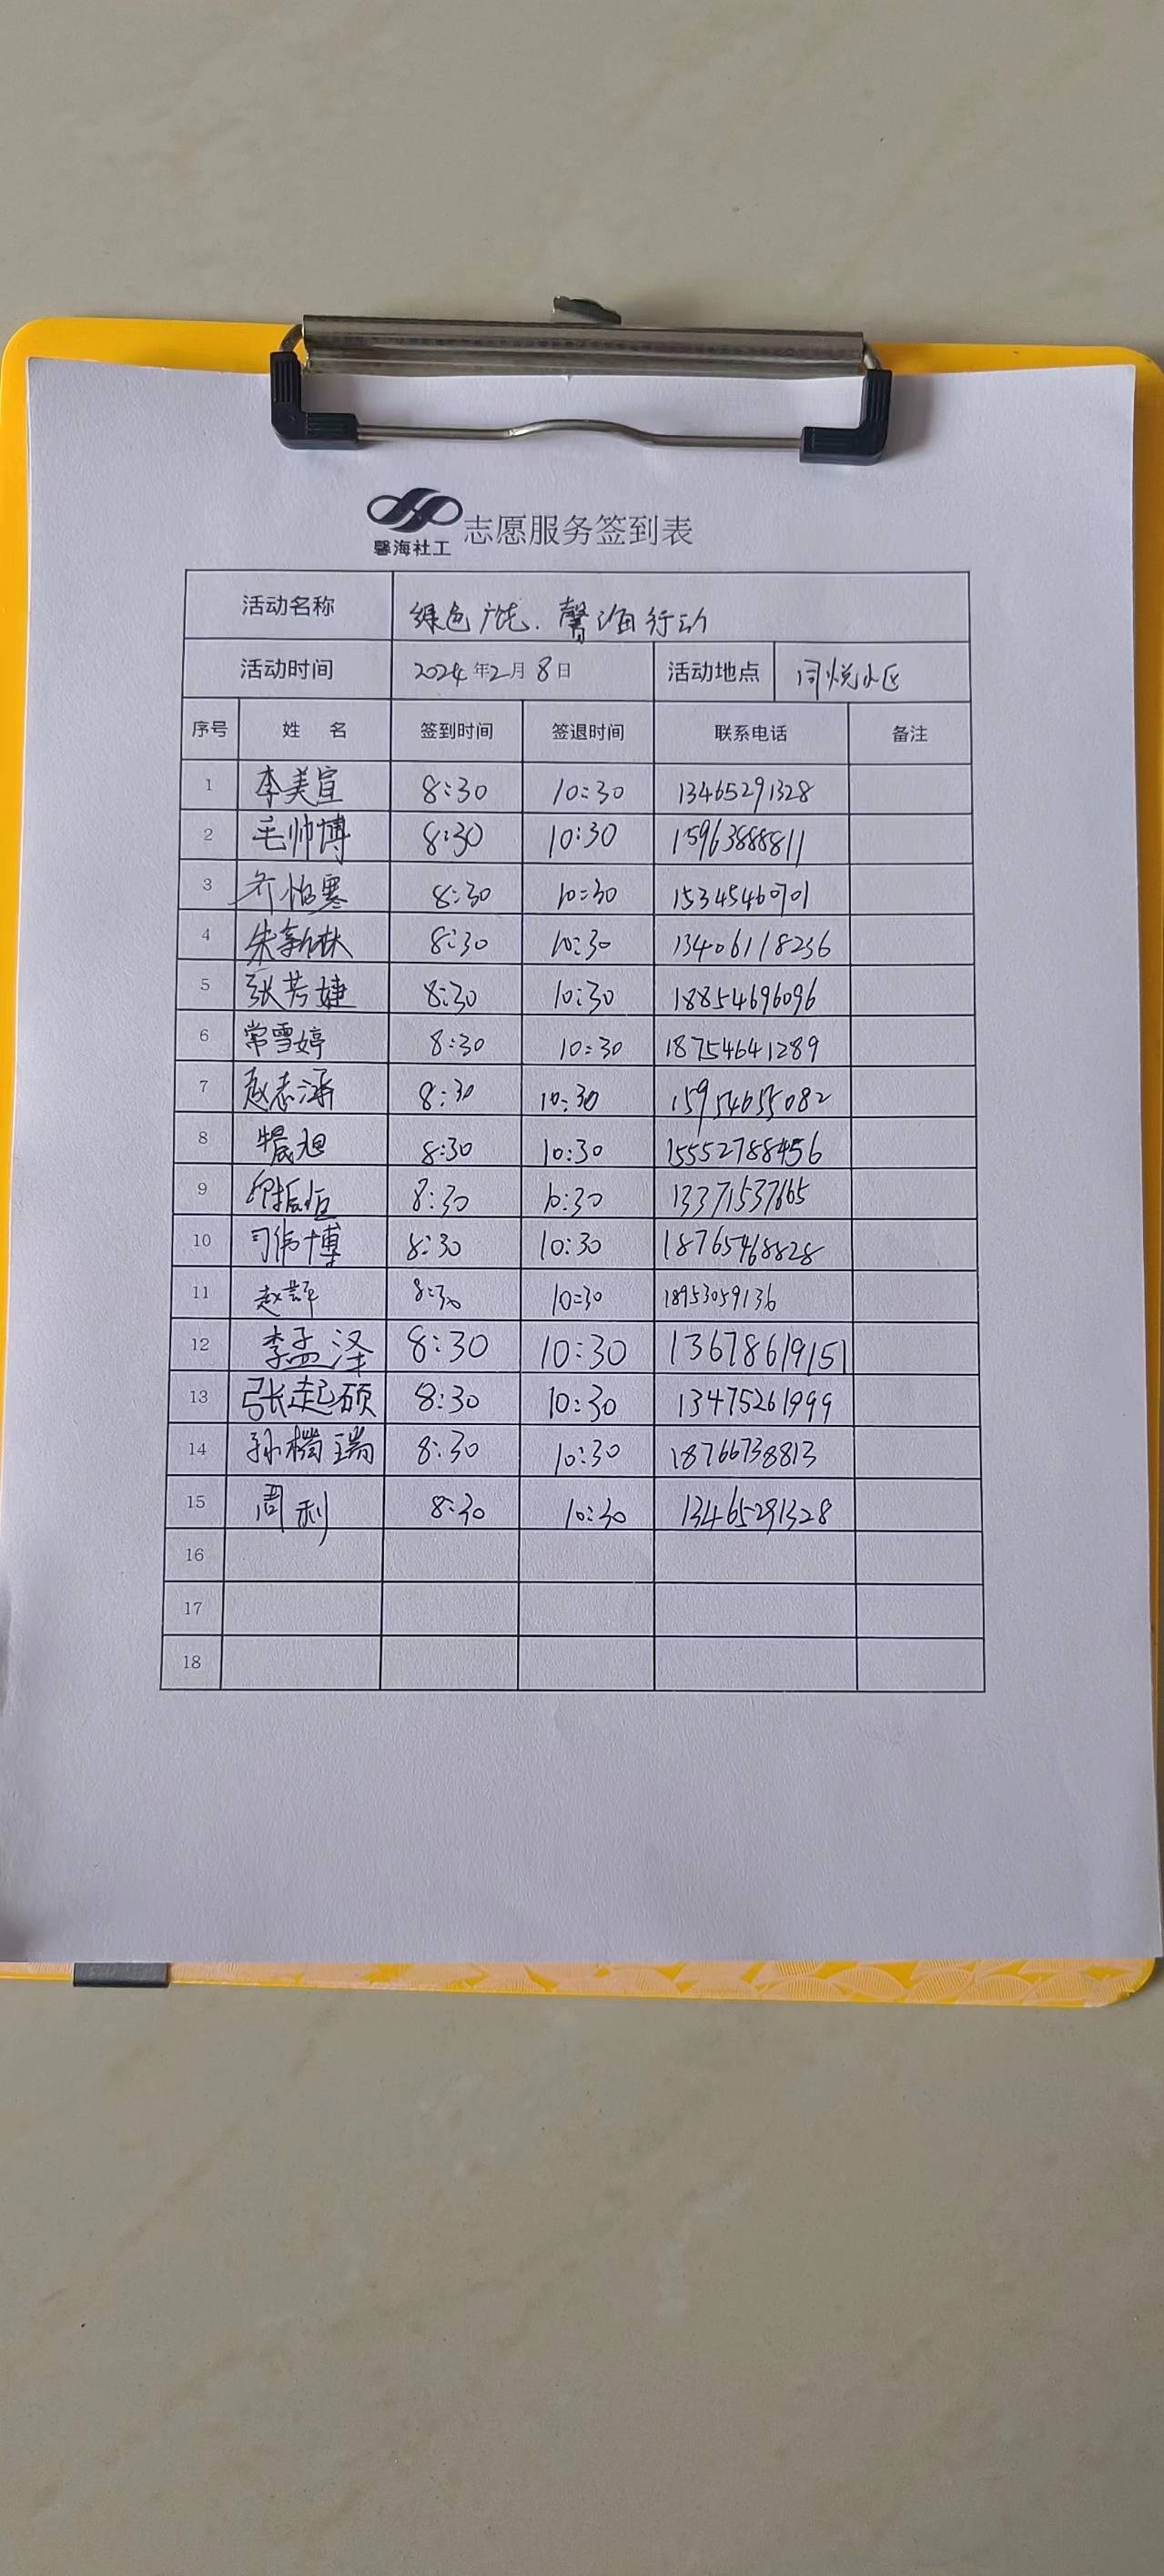 馨海社工 志愿服务签到表
活动名称 绿色广饶.馨海行动
活动时间 2024年2月8日 活动地点 同悦小区
序号 姓 名 签到时间 签退时间 联系电话 备注
1 李美宣 8:30 10:30 13465291328
2 毛帅博 8:30 10:30 15963888811
3 齐怡寒 8:30 10:30 15345460701
4 8:30 10:30 13406118236
5 张芳婕 8:30 10:30 18854696096
6 常雪婷 8:30 10:30 18754641289
7 赵志涵 8:30 10:30 15954655082
8 8:30 10:30 15552788456
9 8:30 10:30 13371537665
10 司伟博 8:30 10:30 18765468828
11 8:30 10:30 18953059136
12 李孟泽 8:30 10:30 13678619151
13 张起硕 8:30 10:30 13475261999
14 8:30 10:30 18766738813
15 周利 8:30 10:30 13465291328
16
17
18